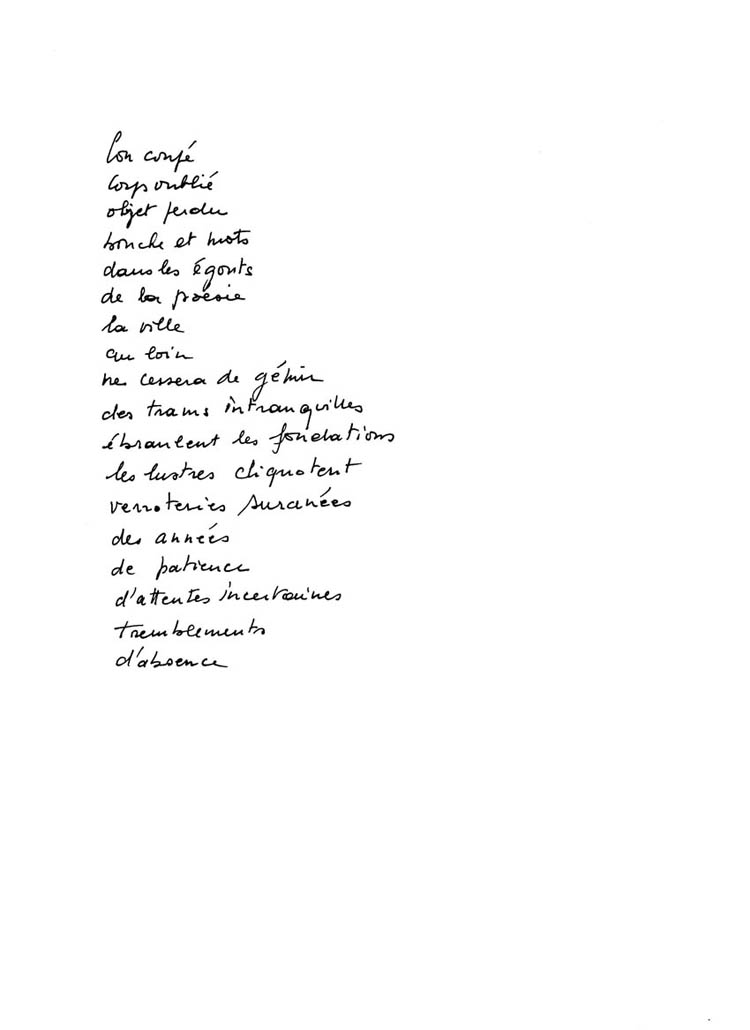 Cou coupé
Corps oublié
objet perdu
bouche et mots
dans les égouts
de la poésie
la ville
au loin
ne cessera de gémir
des trams intranquilles
ébranlent les fondations
les lustres cliquotent
verroteries suranées
des années
de patience
d'attentes incertaines
tremblements
d'absence